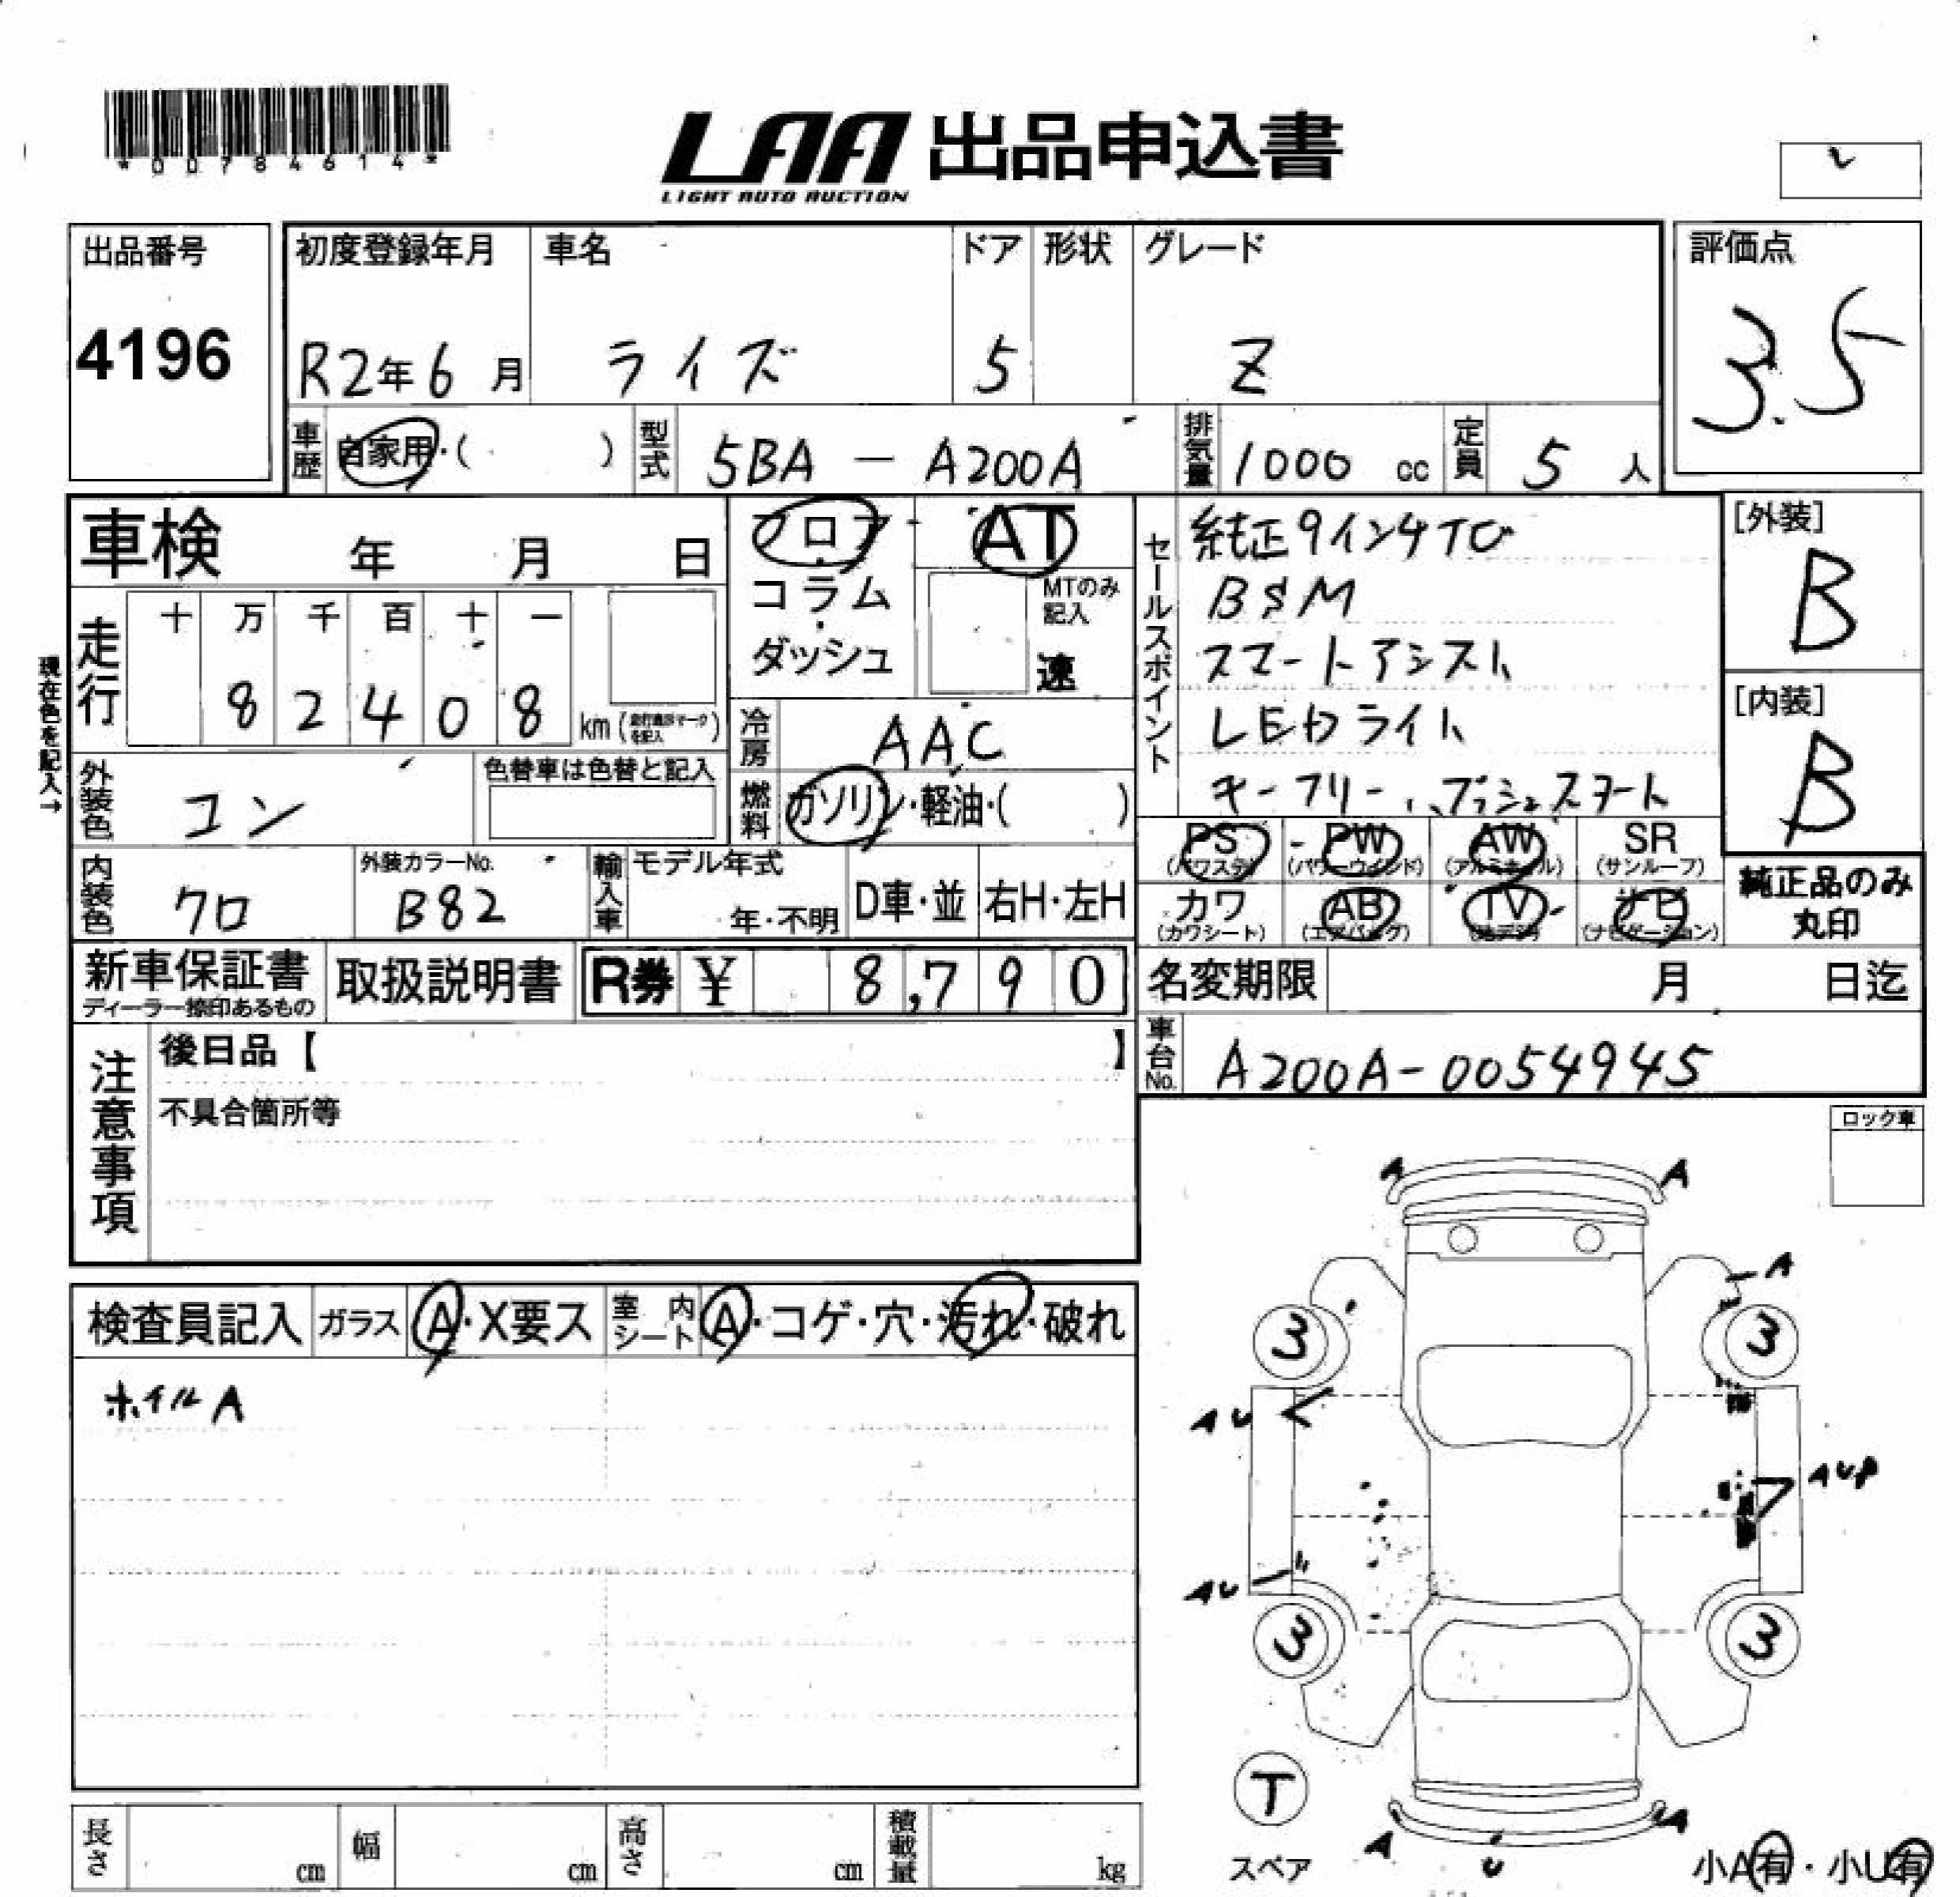 *00784614*
LAA 出品申込書
LIGHT AUTO AUCTION
出品番号
4196
初度登録年月 車名 ドア 形状 グレード
R2年6月 ライズ 5 Z
評価点
3.5
車歴 自家用・( ) 型式 5BA-A200A 排気量 1000cc 定員 5人
車検 年 月 日
フロア・コラム・ダッシュ
AT
MTのみ記入
速
セールスポイント
純正9インチTC
BSM
スマートアシスト
LEDライト
キーフリー、プッシュスタート
[外装]
B
[内装]
B
現在色を記入→
走行 十 万 千 百 十 一
8 2 4 0 8 km
冷房 AAC
外装色 コン 色替車は色替と記入
燃料 ガソリン・軽油・( )
PS (パワステ) PW (パワーウインド) AW (アルミホイル) SR (サンルーフ)
カワ (カワシート) AB (エアバッグ) TV (地デジ) ナビ (ナビゲーション)
純正品のみ丸印
内装色 クロ 外装カラーNo. B82 輸入車 モデル年式 年・不明 D車・並 右H・左H
新車保証書 ディーラー捺印あるもの 取扱説明書 R券 ¥ 8,790
名変期限 月 日迄
車台No. A200A-0054945
注意事項
後日品【 】
不具合箇所等
ロック車
検査員記入 ガラス A・X要ス 室内シート A・コゲ・穴・汚れ・破れ
ホイルA
A A
A
3 3
AU
AUP
AU
3 3
T
スペア
A U A
小A有・小U有
長さ cm 幅 cm 高さ cm 積載量 kg